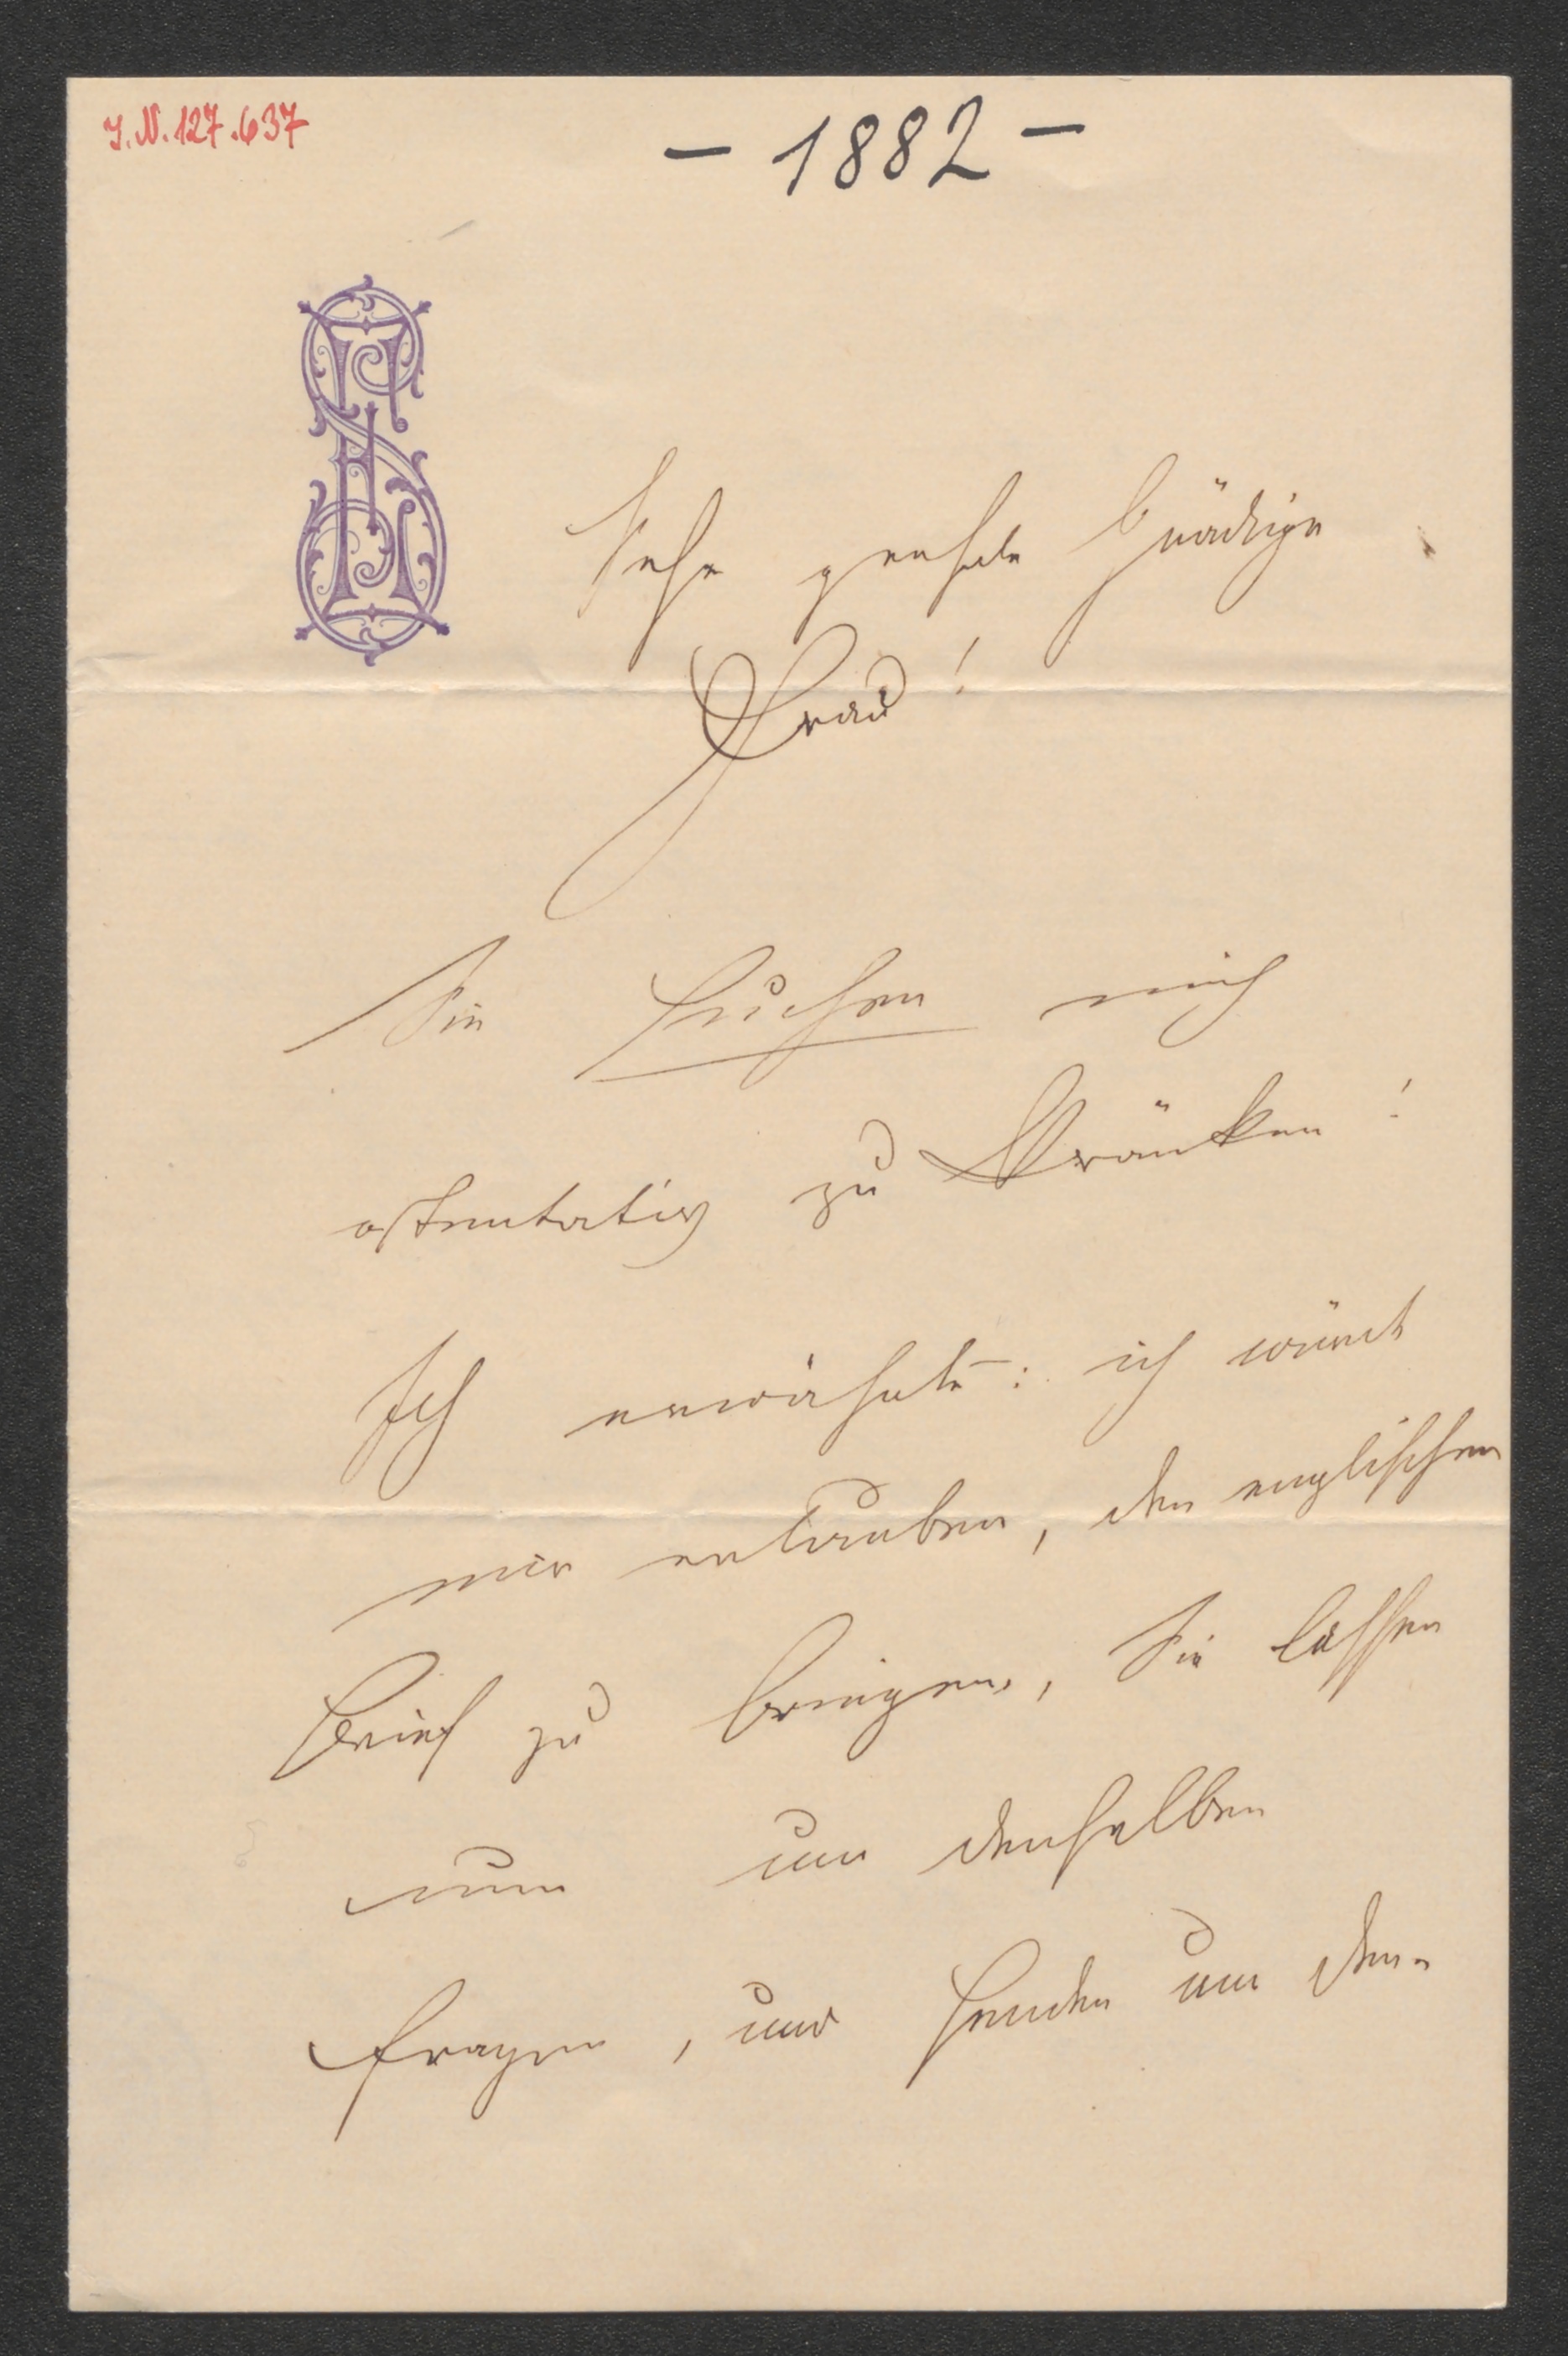 I.N. 127.637
- 1882 -
Sehr geehrte Gnädige
Frau!
Sie suchen mich
ostentativ zu Kränken!
Ich erwähnte: ich würde
mir erlauben, den englischen
Brief zu bringen, Sie lassen
nun um denselben
fragen, und senden um den-